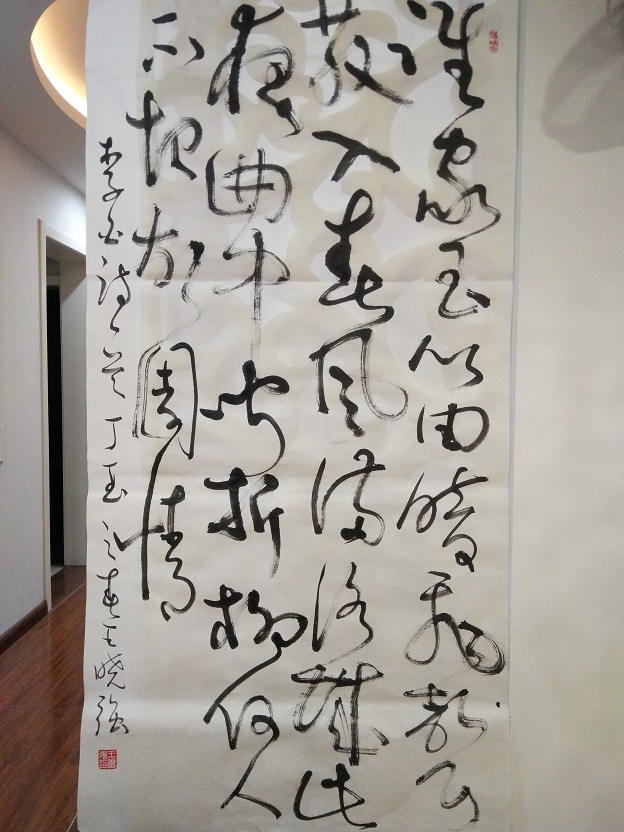 誰家玉笛暗飛聲
散入春風滿洛城此
夜曲中聞折柳何人
不起故園情
李白詩一首丁酉之春王曉強